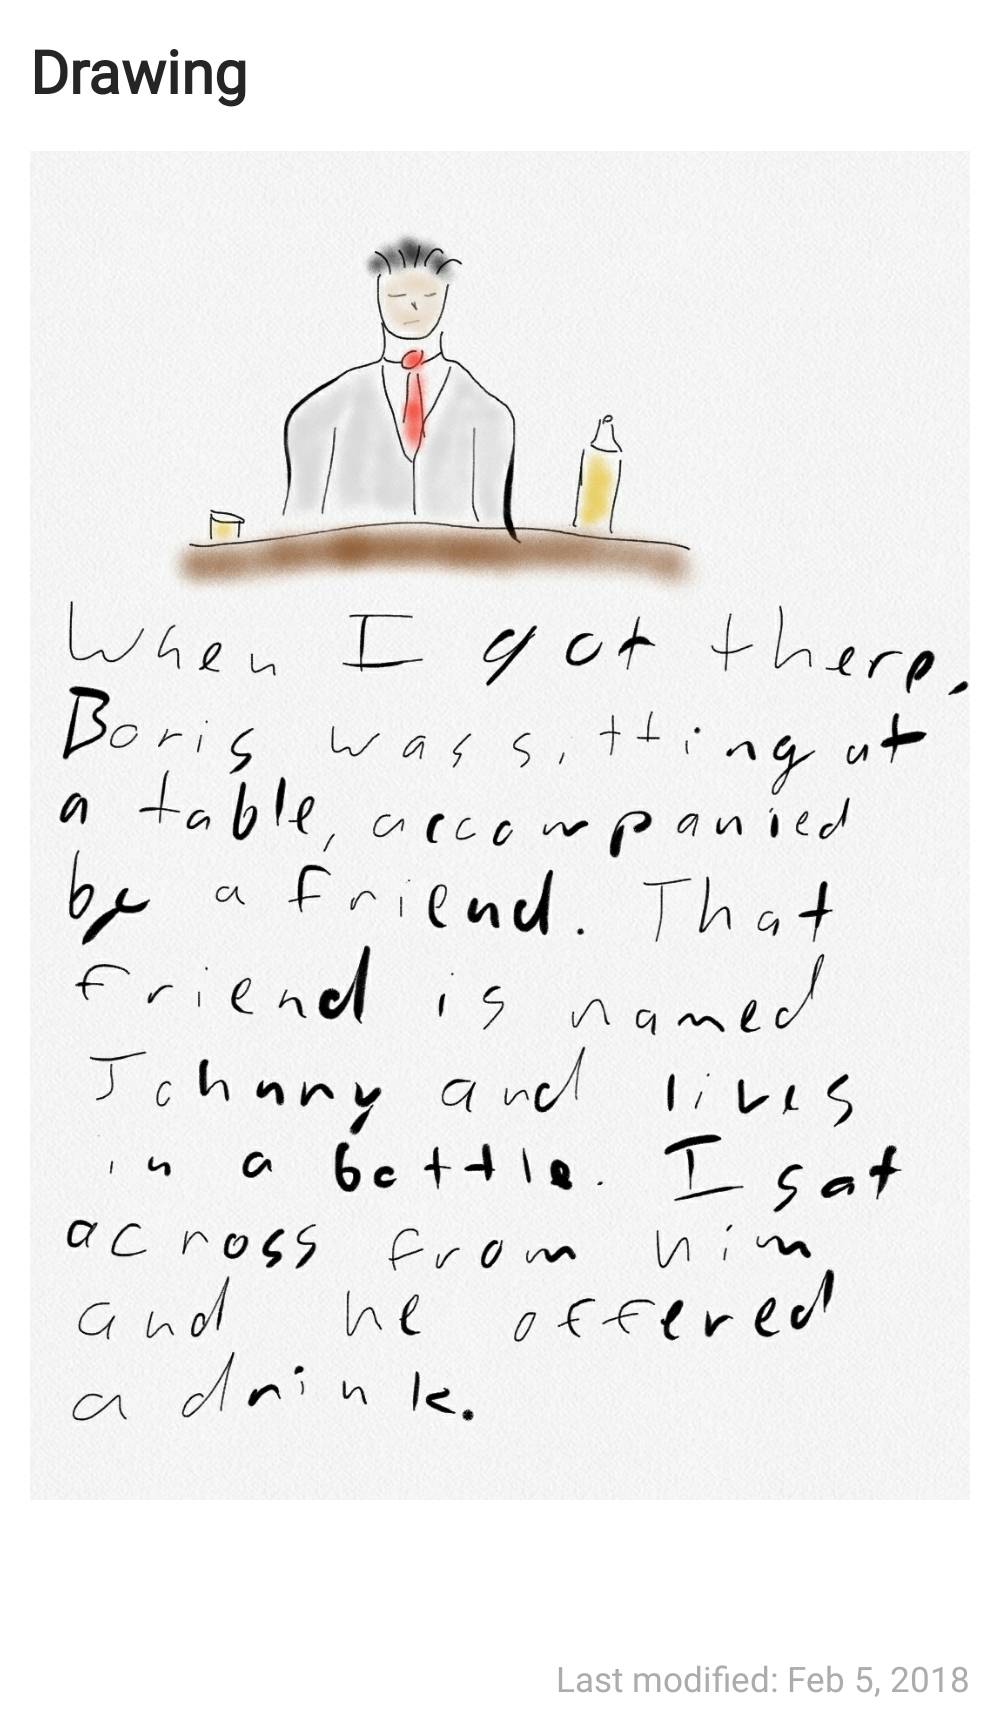 Drawing
When I got there,
Boris was sitting at
a table, accompanied
by a friend. That
friend is named
Johnny and lives
in a bottle. I sat
across from him
and he offered
a drink.
Last modified: Feb 5, 2018